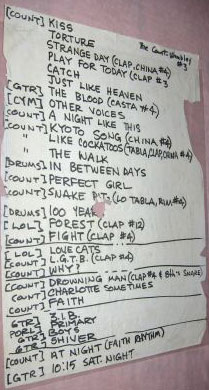 [COUNT] KISS
TORTURE
The Cure Wembley #3
STRANGE DAY (CLAP, CHINA #4)
PLAY FOR TODAY (CLAP #3
CATCH
JUST LIKE HEAVEN
[GTR] THE BLOOD (CASTA #4)
[CYM] OTHER VOICES
[COUNT] A NIGHT LIKE THIS
[COUNT] KYOTO SONG (CHINA, #4)
" LIKE COCKATOOS (TABLA, CLAP, CHINA #4)
" THE WALK
[DRUMS] IN BETWEEN DAYS
[COUNT] PERFECT GIRL
[COUNT] SNAKE PIT (LO TABLA, RIM, #4)
[DRUMS] 100 YEARS
[LOL] FOREST (CLAP #12)
[COUNT] FIGHT (CLAP #4)
[LOL] LOVE CATS
[COUNT] L.G.T.B. (CLAP #4)
[COUNT] WHY?
[COUNT] DROWNING MAN (CLAP #4 & 8th's SNARE)
[COUNT] CHARLOTTE SOMETIMES
[COUNT] FAITH
3.I.B.
GTR PRIMARY
PORL BOYS
GTR SHIVER
[COUNT] AT NIGHT (FAITH RHYTHM)
[GTR] 10:15 SAT. NIGHT